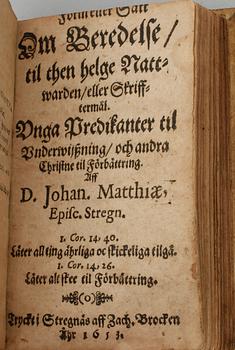 Form eller Sätt
Om Beredelse/
til then helge Natt-
warden/eller Skriff-
termål.
Vnga Predikanter til
Vnderwijßning/ och andra
Christne til Förbättring.
Aff
D. Johan. Matthiæ,
Episc. Stregn.
1. Cor. 14. 40.
Läter all ting ährliga oc skickeliga tilgå.
1. Cor. 14. 26.
Läter alt skee til Förbättring.
(o)
Tryckt i Stregnäs aff Zach. Brocken
Åhr 1653.